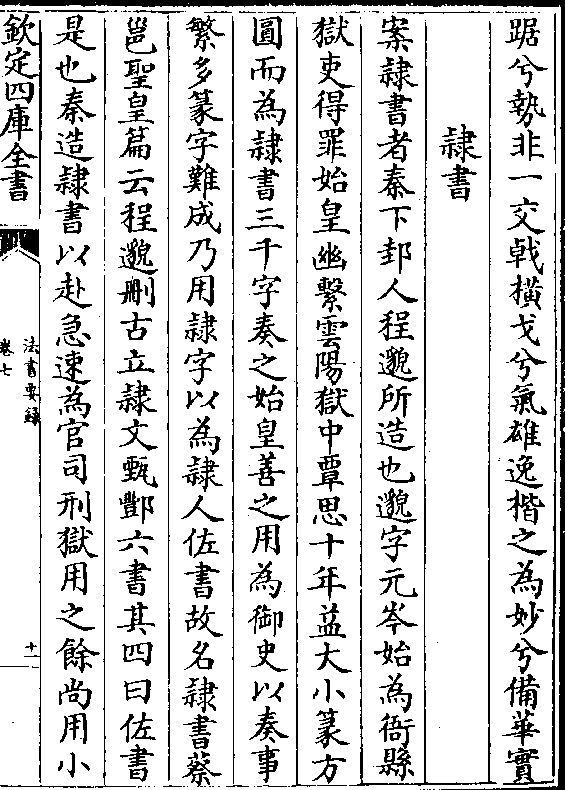 踞兮勢非一交戟橫戈兮氣雄逸楷之為妙兮備華實
隸書
案隸書者秦下邽人程邈所造也邈字元岑始為衙縣
獄吏得罪始皇幽繫雲陽獄中覃思十年益大小篆方
圓而為隸書三千字奏之始皇善之用為御史以奏事
繁多篆字難成乃用隸字以為隸人佐書故名隸書蔡
邕聖皇篇云程邈刪古立隸文甄酆六書其四曰佐書
是也秦造隸書以赴急速為官司刑獄用之餘尚用小
欽定四庫全書
法書要錄
卷七
十一